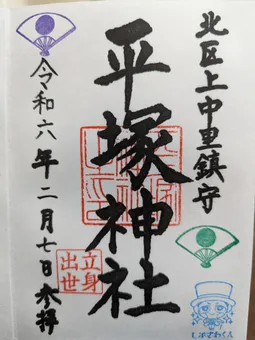 北区上中里鎮守
平塚神社
令和六年二月七日参拝
立身
出世
しぶさわくん